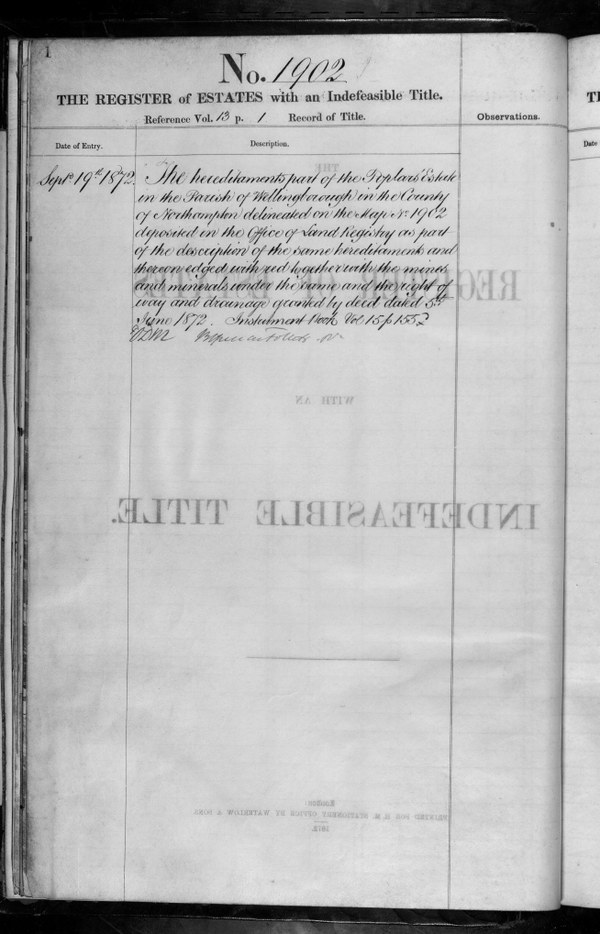 1
No. 1902
THE REGISTER of ESTATES with an Indefeasible Title.
Reference Vol. 13 p. 1 Record of Title.
Observations.
Date of Entry.
Description.
Septr 19th 1872.
The hereditaments part of the Poplars Estate
in the Parish of Wellingborough in the County
of Northampton delineated on the Map No 1902
deposited in the Office of Land Registry as part
of the description of the same hereditaments and
thereon edged with red together with the mines
and minerals under the same and the right of
way and drainage granted by deed dated 5th
June 1872. Instrument Book Vol 15 p 155
THE
REGISTER OF ESTATES
WITH AN
INDEFEASIBLE TITLE.
London:
PRINTED FOR H. M. STATIONERY OFFICE BY WATERLOW & SONS
1872.
TH
Date